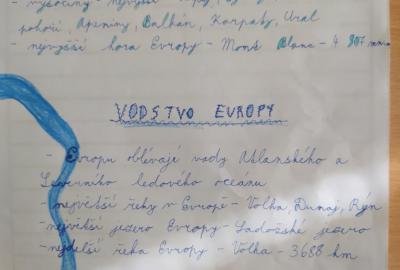 - vysočiny - nejvyšší
pohoří, Apeniny, Balkán, Karpaty, Ural
- nejvyšší hora Evropy - Mont Blanc - 4 807 m n m
VODSTVO EVROPY
- Evropu oblévají vody Atlanského a
Severního ledového oceánu
- největší řeky v Evropě - Volha, Dunaj, Rýn
- největší jezero Evropy - Ladožské jezero
- nejdelší řeka Evropy - Volha - 3688 km